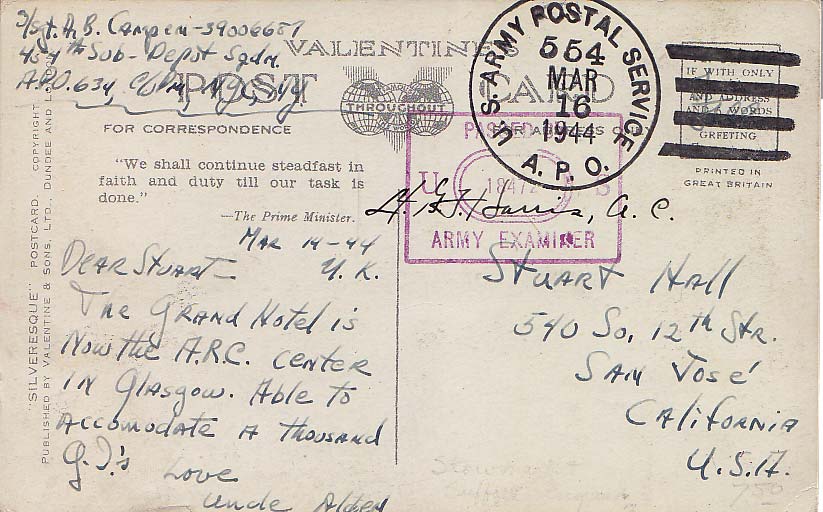 S/Sgt. A.B. Campen - 39006687
Sub-Depot Sqdn.
A.P.O. 634, N.Y.
VALENTINE'S
POST CARD
THROUGHOUT
FOR CORRESPONDENCE
"We shall continue steadfast in
faith and duty till our task is
done."
—The Prime Minister.
Mar 14-44
U.K.
Dear Stuart—
The Grand Hotel is
Now the A.R.C. center
in Glasgow. Able to
Accomodate A thousand
G.I.'s Love
Uncle Alden
"SILVERESQUE" POSTCARD. COPYRIGHT
PUBLISHED BY VALENTINE & SONS, LTD., DUNDEE AND
U.S. ARMY POSTAL SERVICE
554
MAR
16
1944
A.P.O.
IF WITH ONLY
AND ADDRESS
AND WORDS
GREETING
PRINTED IN
GREAT BRITAIN
PASSED
ADDRESS ONLY
U S
18472
ARMY EXAMINER
Harris, A.C.
Stuart Hall
540 So. 12th Str.
San José
California
U.S.A.
750